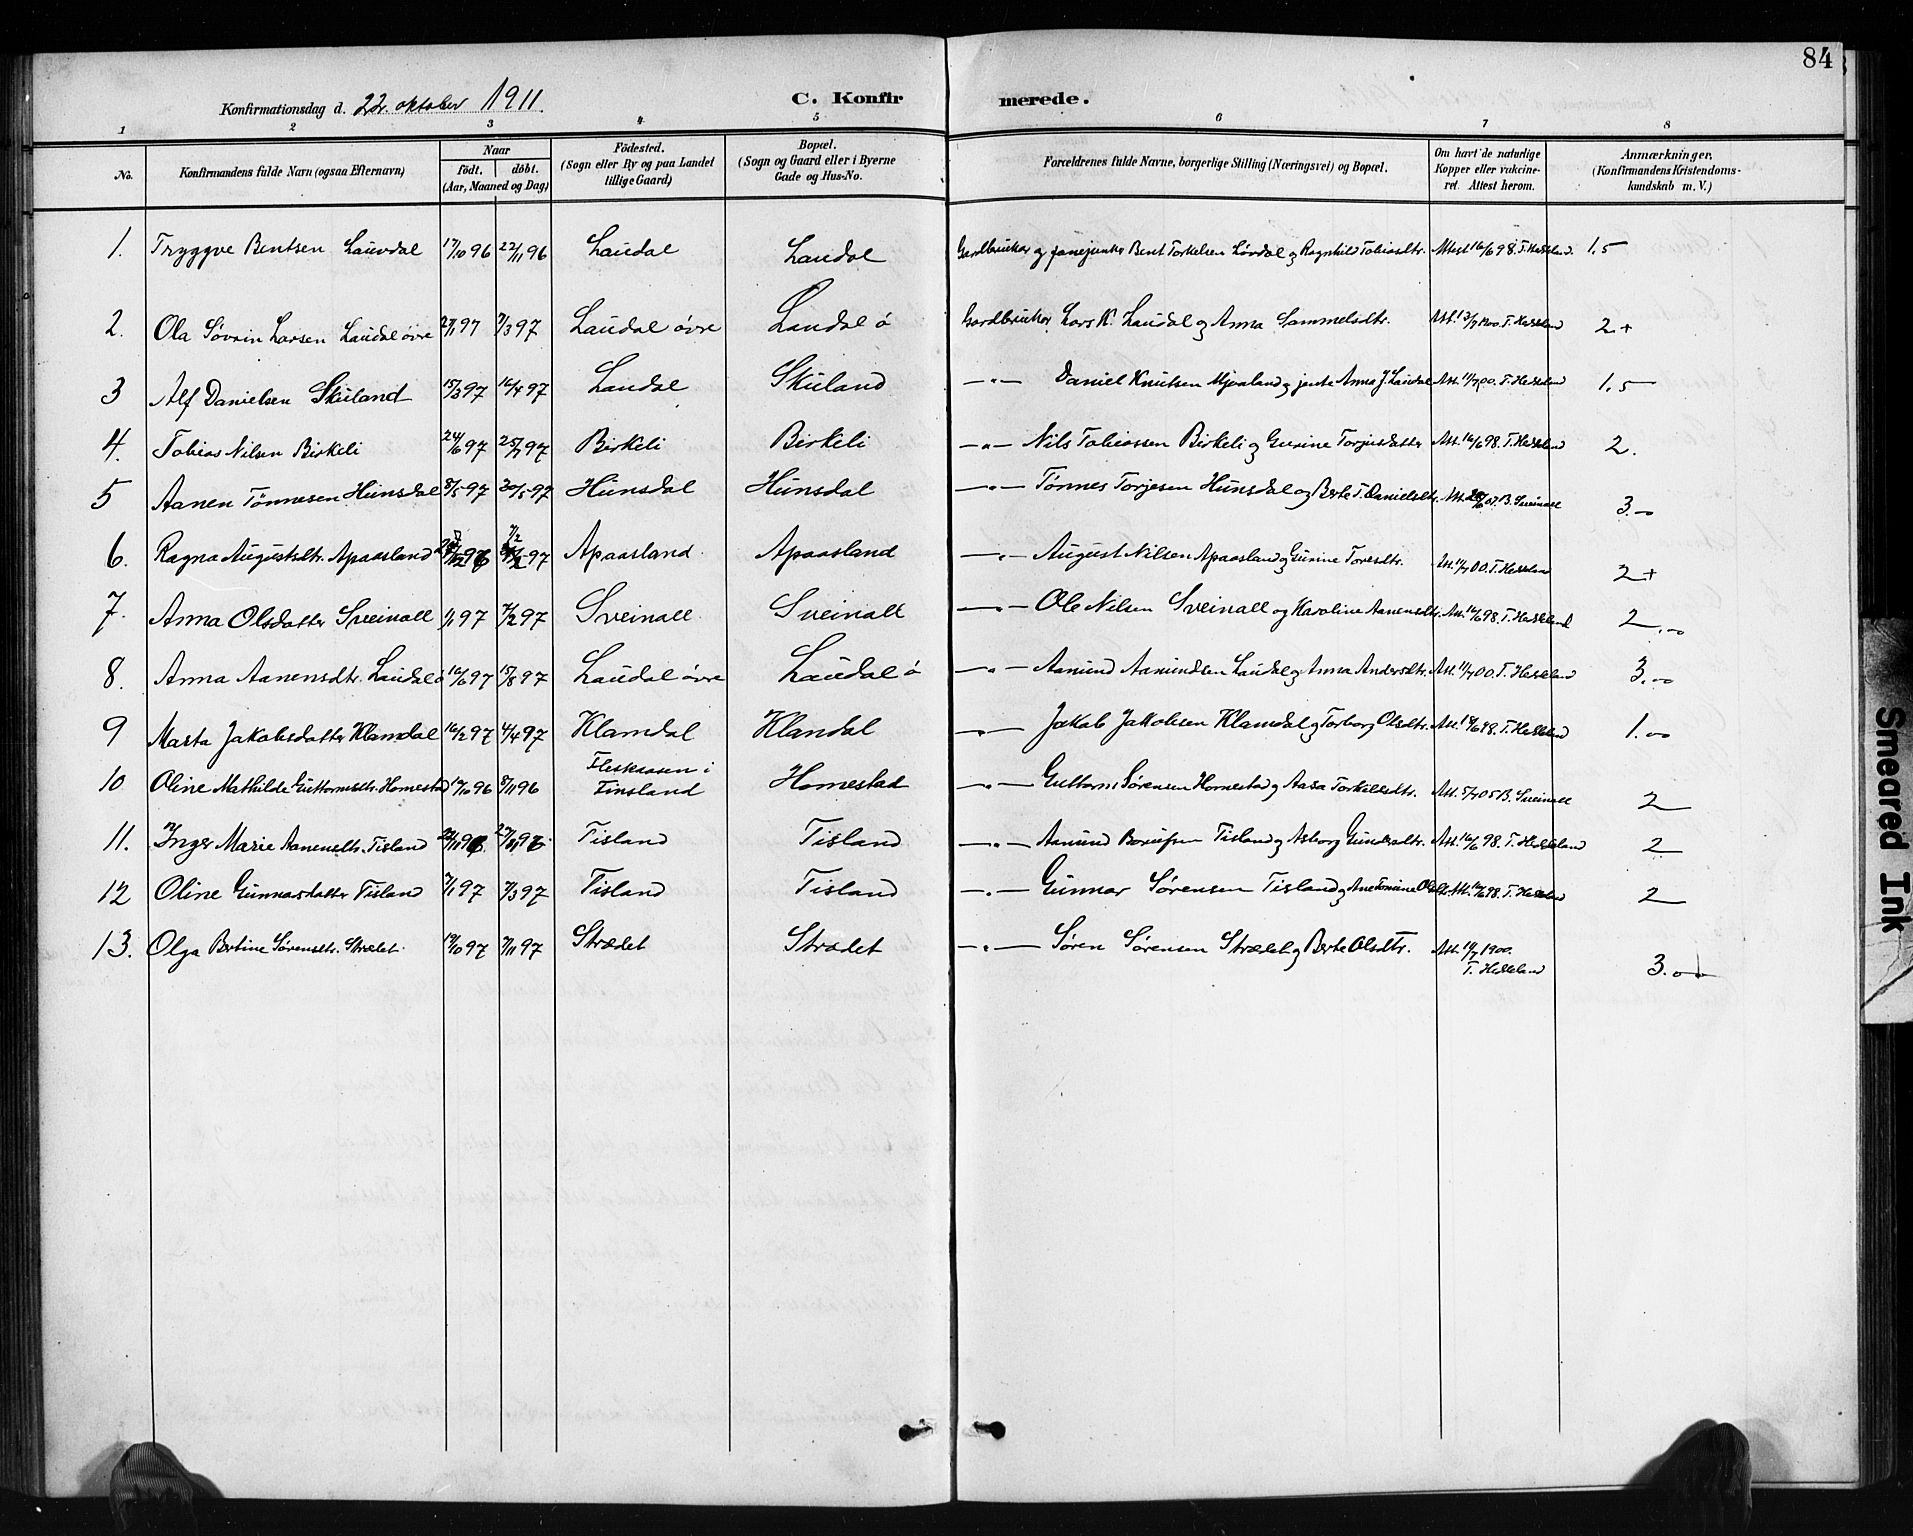 84
Konfirmationsdag d. 22. oktober 1911. C. Konfirmerede.
1 2 3 4 5 6 7 8
No. Konfirmandens fulde Navn (ogsaa Efternavn) Naar født. døbt. (Aar, Maaned og Dag) Födested. (Sogn eller By og paa Landet tillige Gaard) Bopæl. (Sogn og Gaard eller i Byerne Gade og Hus-No. Forældrenes fulde Navne, borgerlige Stilling (Næringsvei) og Bopæl. Om havt de naturlige Kopper eller vakcineret. Attest herom. Anmærkninger. (Konfirmandens Kristendomskundskab m. V.)
1. Tryggve Bentsen Lauvdal 17/10 96 22/11 96 Laudal Laudal Gardbruker og fanejunker Bent Torkelsen Løvdal og Ragnhild Tobiasdtr. Attest 16/6 98. T. Heddeland. 1.5
2. Ola Søvrin Larsen Laudal øvre 27/1 97 7/3 97 Laudal øvre Laudal ø Gardbruker Lars K. Laudal og Anna Sammelsdtr. Att. 13/7 1900. T. Heddeland 2+
3 Alf Danielsen Skuland 15/3 97 16/4 97 Laudal Skuland —"— Daniel Knutsen Mjoaland og jente Anna J. Laudal Att. 11/7 00. T. Heddeland 1.5
4. Tobias Nilsen Birkeli 24/6 97 25/7 97 Birkeli Birkeli —"— Nils Tobiassen Birkeli og Gurine Torjusdatter Att. 16/6 98. T. Heddeland 2.
5 Aanen Tönnesen Hunsdal 8/5 97 30/5 97 Hunsdal Hunsdal —"— Tønnes Torjesen Hunsdal og Berte T. Danielsdtr. B. Sveinall 3.-
6. Ragna Augustsdtr. Apaasland Apaasland Apaasland —"— August Nilsen Apaasland og Gunine Toresdtr. Att. 11/7 00. T. Heddeland 2+
7. Anna Olsdatter Sveinall 1/1 97 7/2 97 Sveinall Sveinall —"— Ole Nilsen Sveinall og Karoline Aanensdtr. Att. 16/6 98. T. Heddeland 2.-
8. Anna Aanensdtr. Laudal ø 16/6 97 15/8 97 Laudal øvre Laudal ø —"— Aamund Aamundsen Laudal og Anna Andersdtr. Att. 11/7 00. T. Heddeland 3.-
9 Marta Jakobsdatter Klamdal 16/2 97 4/4 97 Klamdal Klandal —"— Jakob Jakobsen Klamdal og Torborg Olsdtr. T. Heddeland 1.-
10 Oline Mathilde Guttormsdtr. Homestad 8/11 96 Fleskaasen i Finsland Homestad —"— Guttorm Sørensen Homestad og Aasa Torkelsdtr. Att. 5/7 05 B. Sveinall 2
11. Inger Marie Aanensdtr. Tisland Tisland Tisland —"— Aamund Tisland og Asborg Gundersdtr. Att. 16/6 98. T. Heddeland 2
12 Oline Gunnarsdatter Tisland 7/1 97 7/3 97 Tisland Tisland —"— Gunnar Sørensen Tisland og Ane Tomine T. Heddeland 2
13. Olga Bertine Sørensdtr. Strædet 19/10 97 7/11 97 Strædet Strædet —"— Søren Sørensen Strædet og Berte Olsdtr. Att. 11/7 1900. T. Heddeland 3.-
Smeared Ink